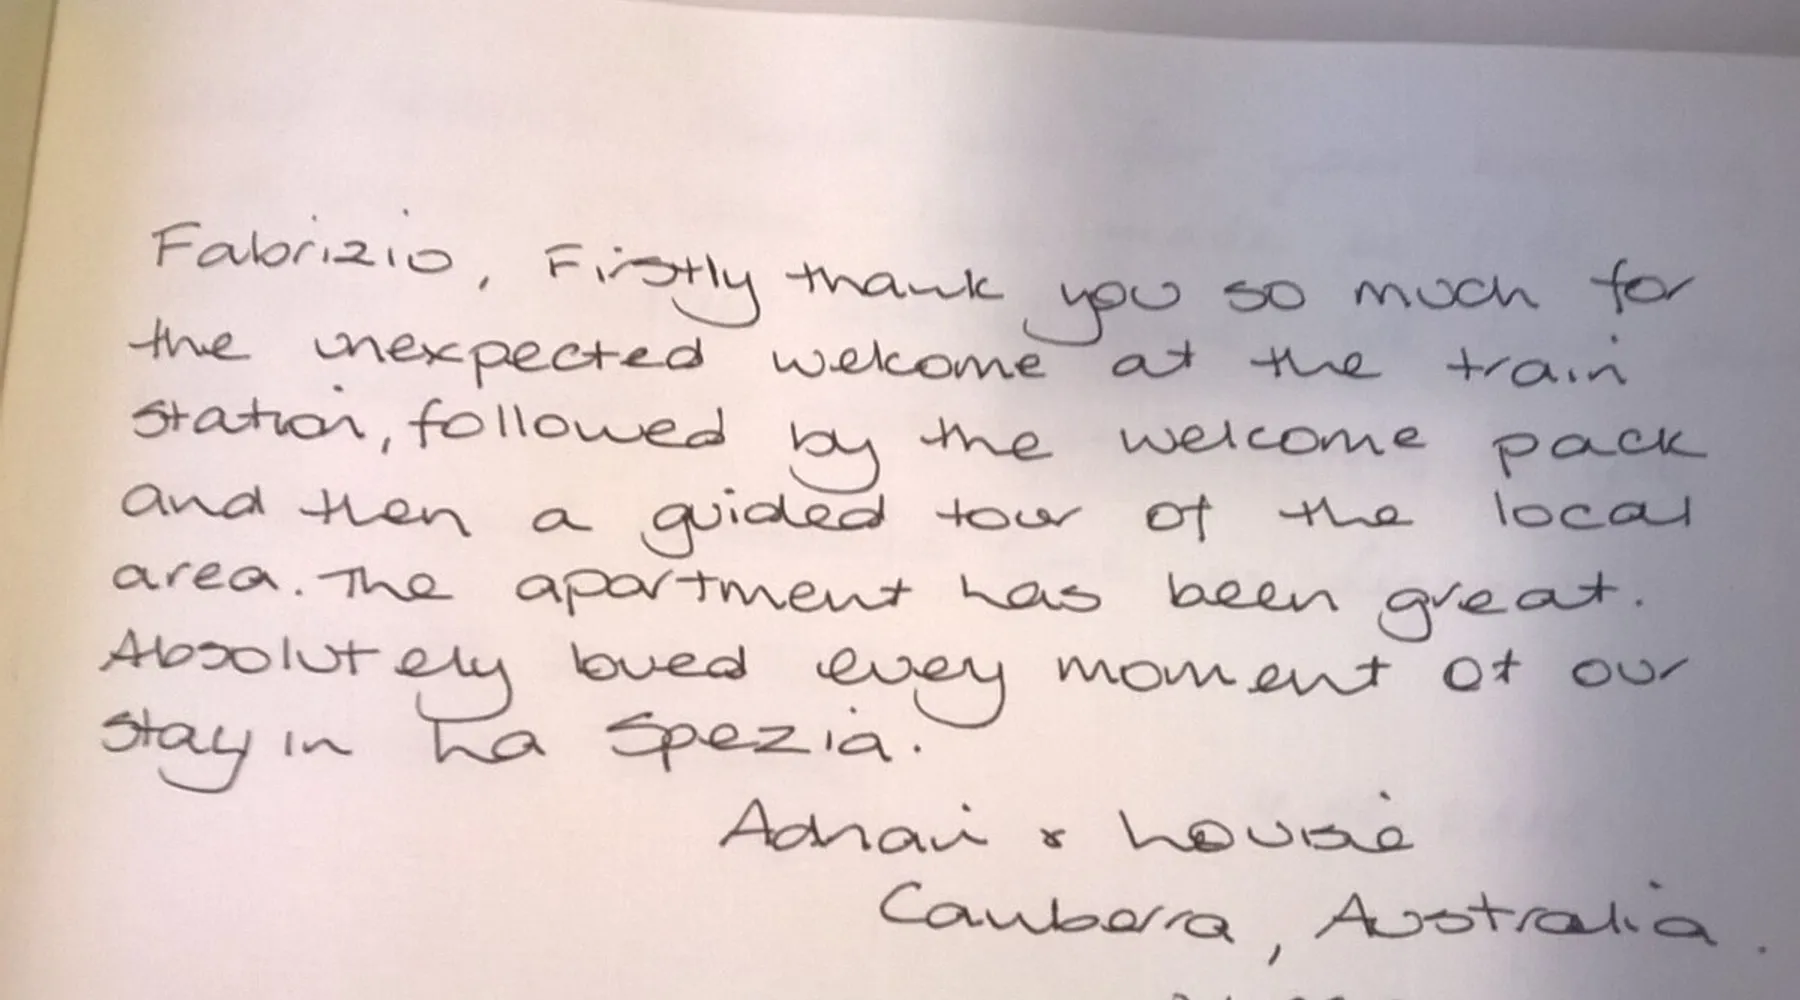 Fabrizio, Firstly thank you so much for
the unexpected welcome at the train
station, followed by the welcome pack
and then a guided tour of the local
area. The apartment has been great.
Absolutely loved evey moment of our
stay in La Spezia.
Adrian & Louise
Canberra, Australia.